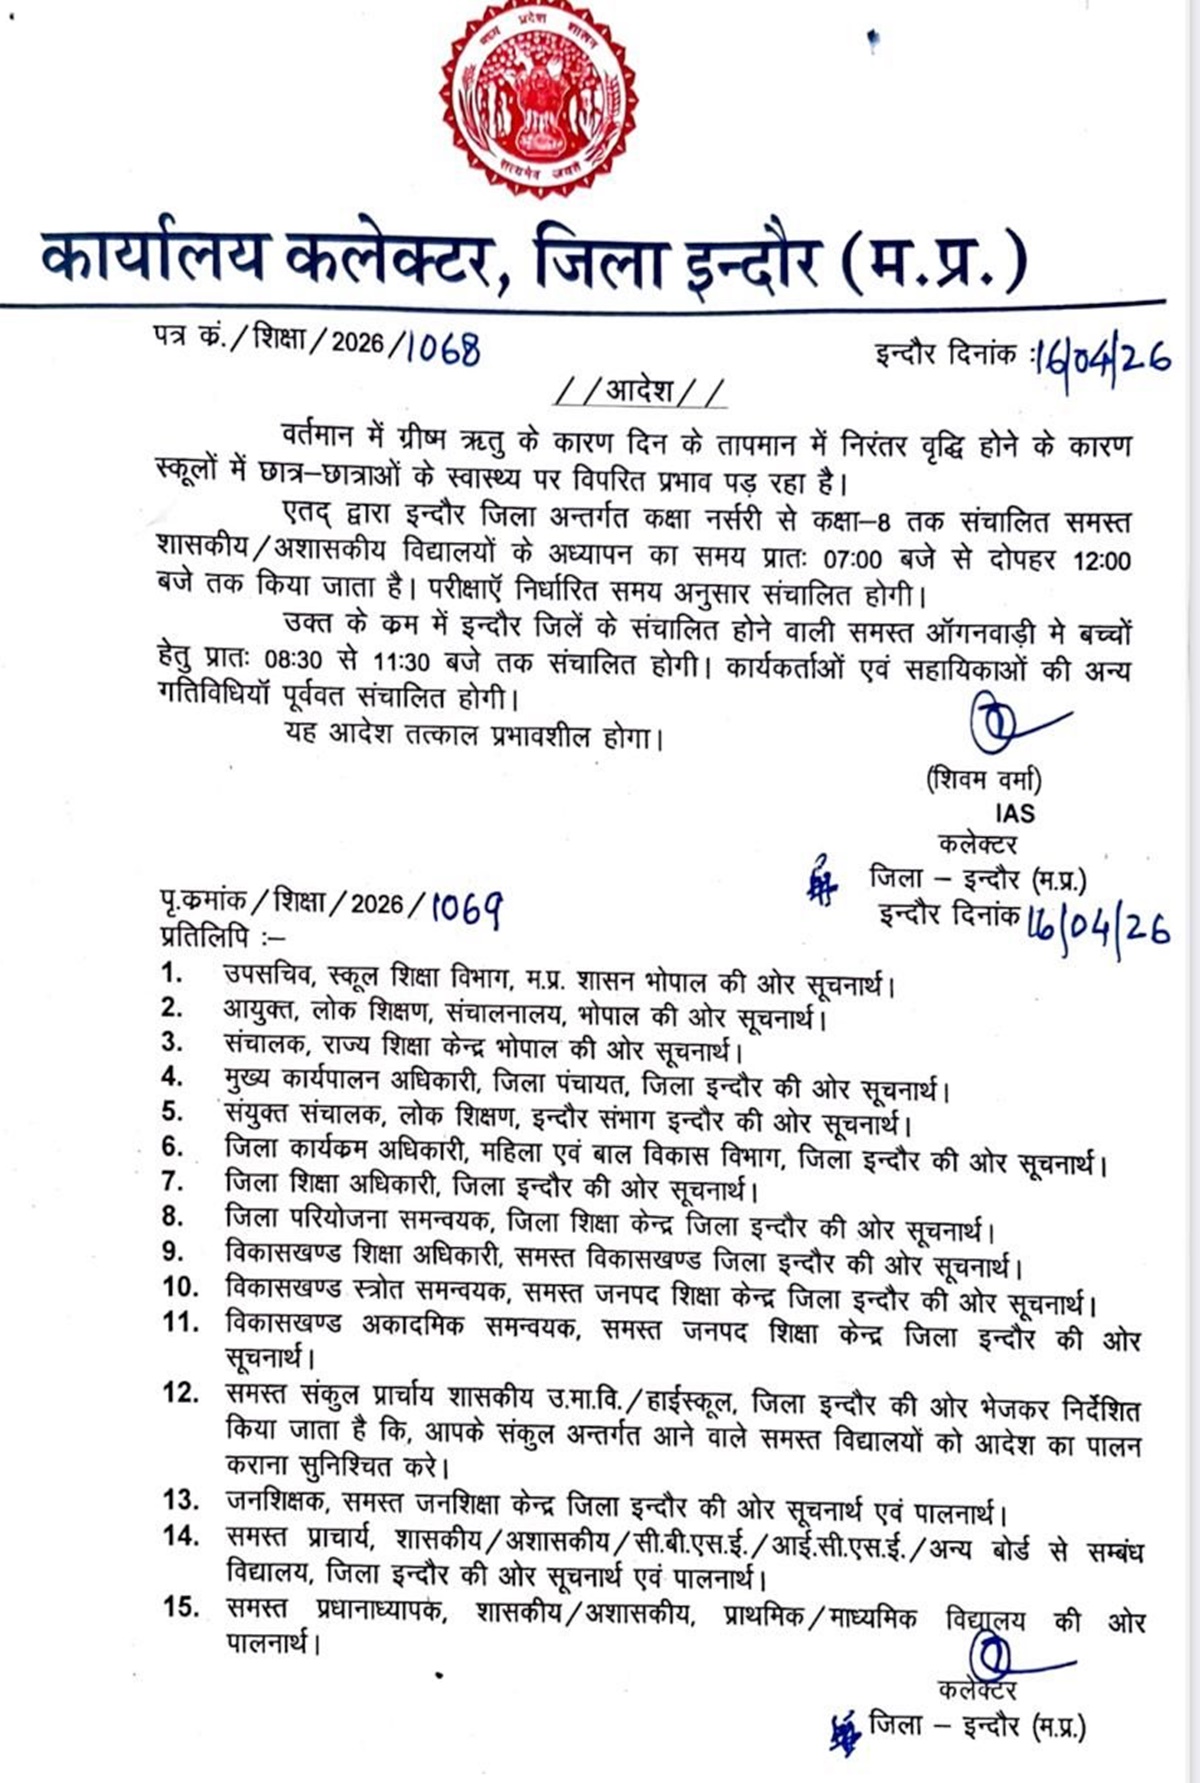 मध्य प्रदेश शासन
सत्यमेव जयते
कार्यालय कलेक्टर, जिला इन्दौर (म.प्र.)
पत्र कं./शिक्षा/2026/1068
इन्दौर दिनांक :16/04/26
//आदेश//
वर्तमान में ग्रीष्म ऋतु के कारण दिन के तापमान में निरंतर वृद्धि होने के कारण
स्कूलों में छात्र–छात्राओं के स्वास्थ्य पर विपरित प्रभाव पड़ रहा है।
एतद् द्वारा इन्दौर जिला अन्तर्गत कक्षा नर्सरी से कक्षा–8 तक संचालित समस्त
शासकीय/अशासकीय विद्यालयों के अध्यापन का समय प्रातः 07:00 बजे से दोपहर 12:00
बजे तक किया जाता है। परीक्षाऍ निर्धारित समय अनुसार संचालित होगी।
उक्त के कम में इन्दौर जिलें के संचालित होने वाली समस्त ऑगनवाड़ी मे बच्चों
हेतु प्रातः 08:30 से 11:30 बजे तक संचालित होगी। कार्यकर्ताओं एवं सहायिकाओं की अन्य
गतिविधियॉ पूर्ववत संचालित होगी।
यह आदेश तत्काल प्रभावशील होगा।
(शिवम वर्मा)
IAS
कलेक्टर
जिला – इन्दौर (म.प्र.)
पृ.कमांक/शिक्षा/2026/1069
इन्दौर दिनांक 16/04/26
प्रतिलिपि :–
1. उपसचिव, स्कूल शिक्षा विभाग, म.प्र. शासन भोपाल की ओर सूचनार्थ।
2. आयुक्त, लोक शिक्षण, संचालनालय, भोपाल की ओर सूचनार्थ।
3. संचालक, राज्य शिक्षा केन्द्र भोपाल की ओर सूचनार्थ।
4. मुख्य कार्यपालन अधिकारी, जिला पंचायत, जिला इन्दौर की ओर सूचनार्थ।
5. संयुक्त संचालक, लोक शिक्षण, इन्दौर संभाग इन्दौर की ओर सूचनार्थ।
6. जिला कार्यकम अधिकारी, महिला एवं बाल विकास विभाग, जिला इन्दौर की ओर सूचनार्थ।
7. जिला शिक्षा अधिकारी, जिला इन्दौर की ओर सूचनार्थ।
8. जिला परियोजना समन्वयक, जिला शिक्षा केन्द्र जिला इन्दौर की ओर सूचनार्थ।
9. विकासखण्ड शिक्षा अधिकारी, समस्त विकासखण्ड जिला इन्दौर की ओर सूचनार्थ।
10. विकासखण्ड स्त्रोत समन्वयक, समस्त जनपद शिक्षा केन्द्र जिला इन्दौर की ओर सूचनार्थ।
11. विकासखण्ड अकादमिक समन्वयक, समस्त जनपद शिक्षा केन्द्र जिला इन्दौर की ओर
सूचनार्थ।
12. समस्त संकुल प्रार्चाय शासकीय उ.मा.वि./हाईस्कूल, जिला इन्दौर की ओर भेजकर निर्देशित
किया जाता है कि, आपके संकुल अन्तर्गत आने वाले समस्त विद्यालयों को आदेश का पालन
कराना सुनिश्चित करे।
13. जनशिक्षक, समस्त जनशिक्षा केन्द्र जिला इन्दौर की ओर सूचनार्थ एवं पालनार्थ।
14. समस्त प्राचार्य, शासकीय/अशासकीय/सी.बी.एस.ई./आई.सी.एस.ई./अन्य बोर्ड से सम्बंध
विद्यालय, जिला इन्दौर की ओर सूचनार्थ एवं पालनार्थ।
15. समस्त प्रधानाध्यापके, शासकीय/अशासकीय, प्राथमिक/माध्यमिक विद्यालय की ओर
पालनार्थ।
कलेक्टर
जिला – इन्दौर (म.प्र.)